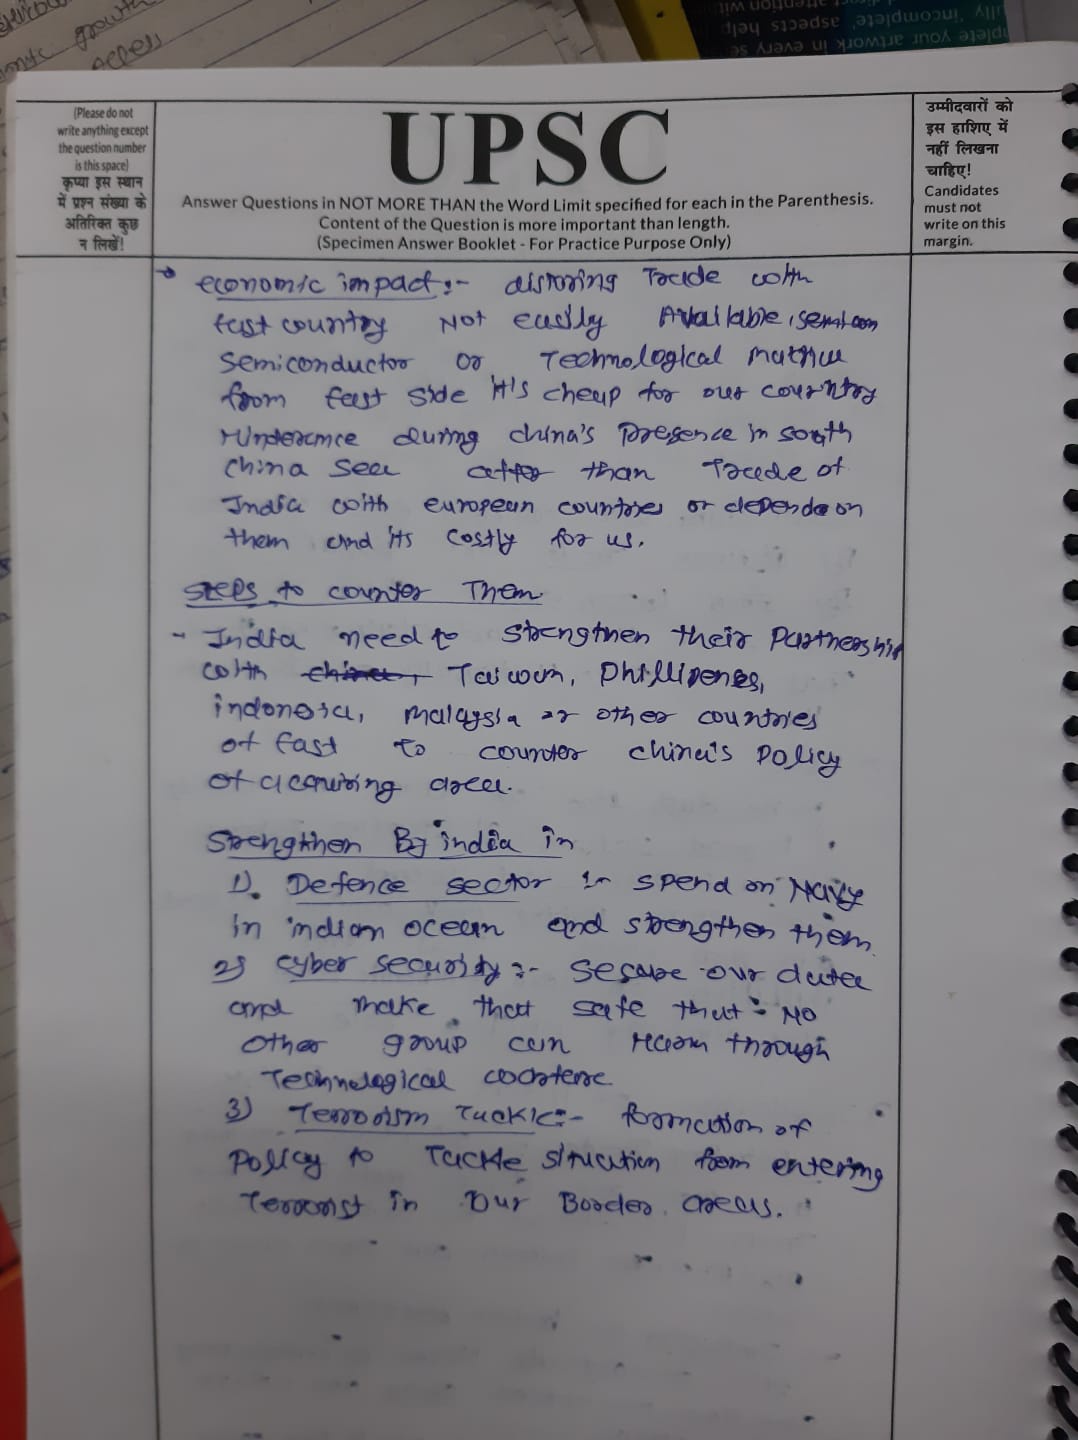 mic growth
access
plete your artwork in every se
lly 'incomplete, aspects help
(Please do not
write anything except
the question number
is this space)
कृप्या इस स्थान
में प्रश्न संख्या के
अतिरिक्त कुछ
न लिखें!
UPSC
Answer Questions in NOT MORE THAN the Word Limit specified for each in the Parenthesis.
Content of the Question is more important than length.
(Specimen Answer Booklet - For Practice Purpose Only)
उम्मीदवारों को
इस हाशिए में
नहीं लिखना
चाहिए!
Candidates
must not
write on this
margin.
economic impact :- Trade with
East country Not easily Available,
semiconductor or Technological
from East side it's cheap for our country
during china's presence in south
china sea than Trade of
India with european countries or depends on
them and its costly for us.
Steps to counter Them
- India need to strengthen their Partnership
with china, Taiwan, Phillipenes,
indonesia, malaysia or other countries
of East to counter china's policy
of acquiring area.
Strengthen By india in
1). Defence sector :- spend on Navy
in indian ocean and strengthen them.
2) cyber security :- secure our data
and make that safe that :- NO
other group can Harm through
Technological
3) Terrorism Tackle :- formation of
policy to Tackle situation from entering
Terrorist in our Border areas.